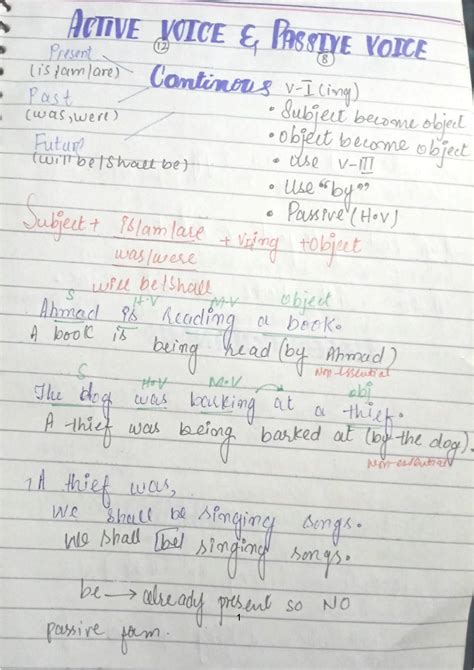 ACTIVE VOICE & PASSIVE VOICE
(12) (8)
Present
(is/am/are)
Continous V-I (ing)
Past
(was, were)
• Subject become object
• object become object
Future
(will be/shall be)
• Use V-III
• Use "by"
• Passive (H.V)
Subject + is/am/are + V-Ing + object
was/were
will be/shall
S H.V M.V object
Ahmad is reading a book.
A book is being read (by Ahmad)
Non-essential
S H.V M.V obj
The dog was barking at a thief.
A thief was being barked at (by the dog).
Non-essential
A thief was,
We shall be singing songs.
We shall be singing songs.
be → already present so NO
1
passive form.